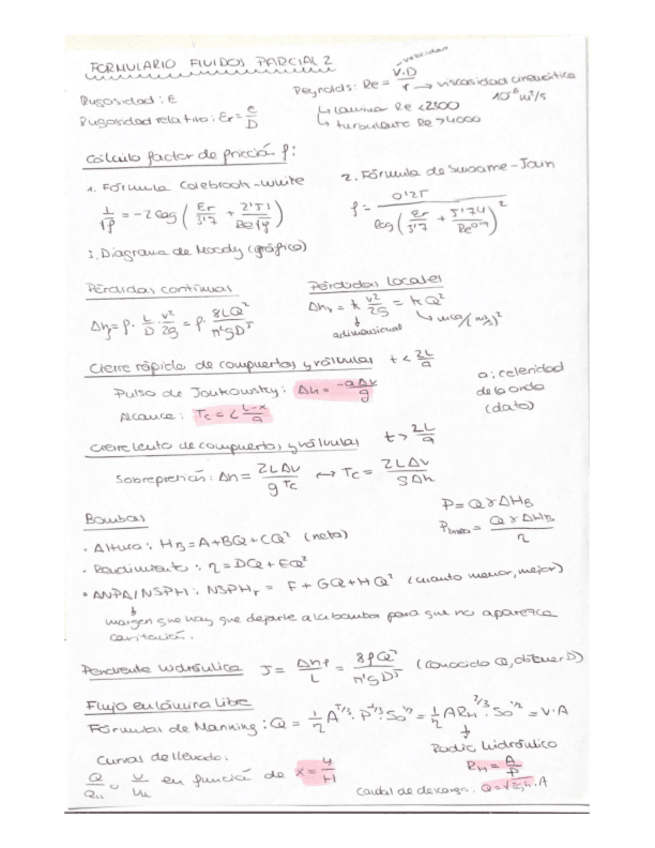 FORMULARIO FLUIDOS PARCIAL 2
Rugosidad: e
Rugosidad relativa: Er = e/D
Reynolds: Re = V·D/r → viscosidad cinemática
velocidad
10⁻⁶ m²/s
↳ laminar Re < 2300
↳ turbulento Re > 4000
Cálculo factor de fricción f:
1. Fórmula Colebrook-White
1/√f = -2 log (Er/3'7 + 2'51/Re√f)
2. Fórmula de Swame-Jain
f = 0'25 / log (Er/3'7 + 5'74/Re^0'9)²
3. Diagrama de Moody (gráfico)
Pérdidas continuas
Δhf = f · L/D · v²/2g = f · 8LQ²/π²gD⁵
Pérdidas locales
Δhr = k v²/2g = k Q²
adimensional
↳ mca/(m³/s)²
Cierre rápido de compuertas y válvulas t < 2L/a
Pulso de Joukowsky: Δh = -aΔv/g
Alcance: Tc = 2 L-x/a
a: celeridad
de la onda
(dato)
Cierre lento de compuertas y válvulas t > 2L/a
Sobrepresión: Δh = 2LΔv/g Tc ↔ Tc = 2LΔv/gΔh
Bombas
P = QγΔHB
• Altura: HB = A + BQ + CQ² (neta)
= QγΔHB/η
• Rendimiento: η = DQ + EQ²
• ANPA/NSPH: NSPHr = F + GQ + HQ² (cuanto menor, mejor)
margen que hay que dejarle a la bomba para que no aparezca
cavitación.
Pendiente hidráulica J = Δhf/L = 8fQ²/π²gD⁵ (conocido Q, obtener D)
Flujo en lámina libre
Fórmulas de Manning: Q = 1/n A^5/3 · P^-2/3 · So^1/2 = 1/n A RH^2/3 · So^1/2 = V·A
Radio hidráulico
RH = A/P
Curvas de llenado:
Q/Qll o V/Vll en función de x = y/H
Caudal de descarga: Q = √2gh · A